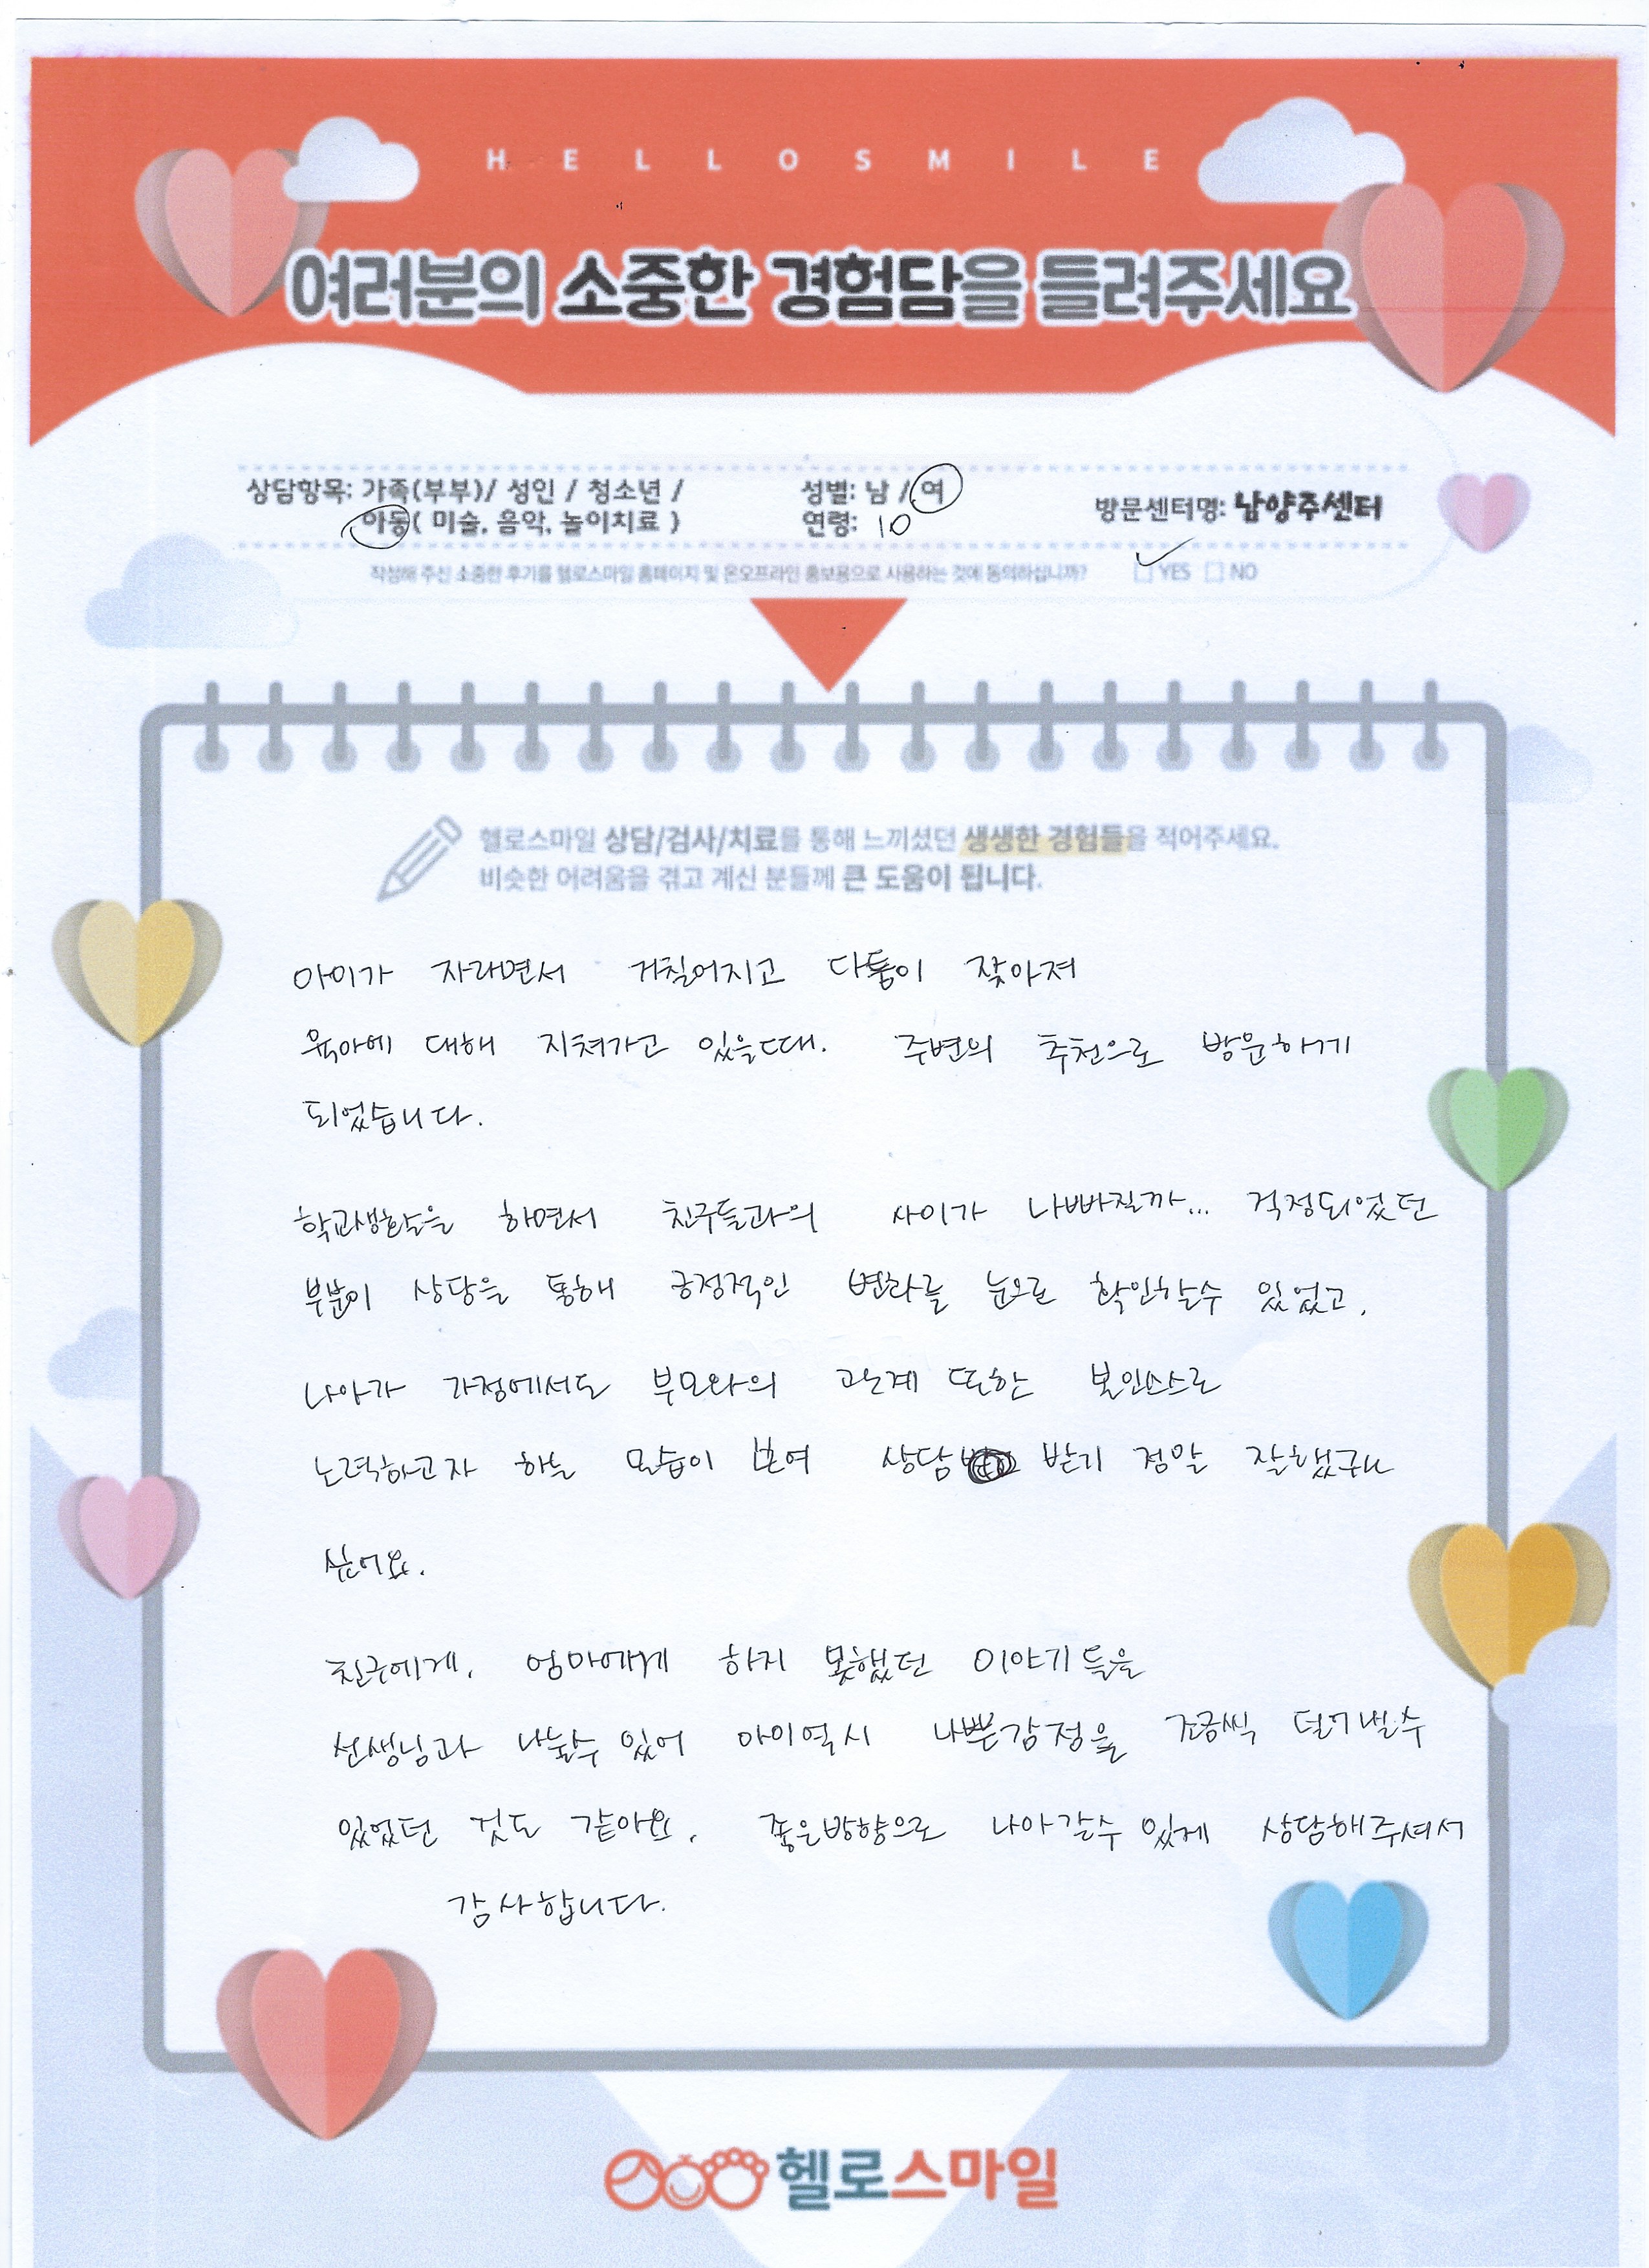 HELLOSMILE
여러분의 소중한 경험담을 들려주세요
상담항목: 가족(부부)/ 성인 / 청소년 /
아동( 미술, 음악, 놀이치료 )
성별: 남 / 여
연령: 10
방문센터명: 남양주센터
작성해 주신 소중한 후기를 헬로스마일 홈페이지 및 온오프라인 홍보용으로 사용하는 것에 동의하십니까? YES NO
헬로스마일 상담/검사/치료를 통해 느끼셨던 생생한 경험들을 적어주세요.
비슷한 어려움을 겪고 계신 분들께 큰 도움이 됩니다.
아이가 자라면서 거칠어지고 다툼이 잦아져
육아에 대해 지쳐가고 있을때. 주변의 추천으로 방문하게
되었습니다.
학교생활을 하면서 친구들과의 사이가 나빠질까... 걱정되었던
부분이 상담을 통해 긍정적인 변화를 눈으로 확인할수 있었고,
나아가 가정에서도 부모와의 관계 또한 본인스스로
노력하고자 하는 모습이 보여 상담 받기 정말 잘했구나
싶어요.
친구에게, 엄마에게 하지 못했던 이야기들을
선생님과 나눌수 있어 아이역시 나쁜감정을 조금씩 덜어낼수
있었던 것도 같아요. 좋은방향으로 나아갈수 있게 상담해주셔서
감사합니다.
헬로스마일